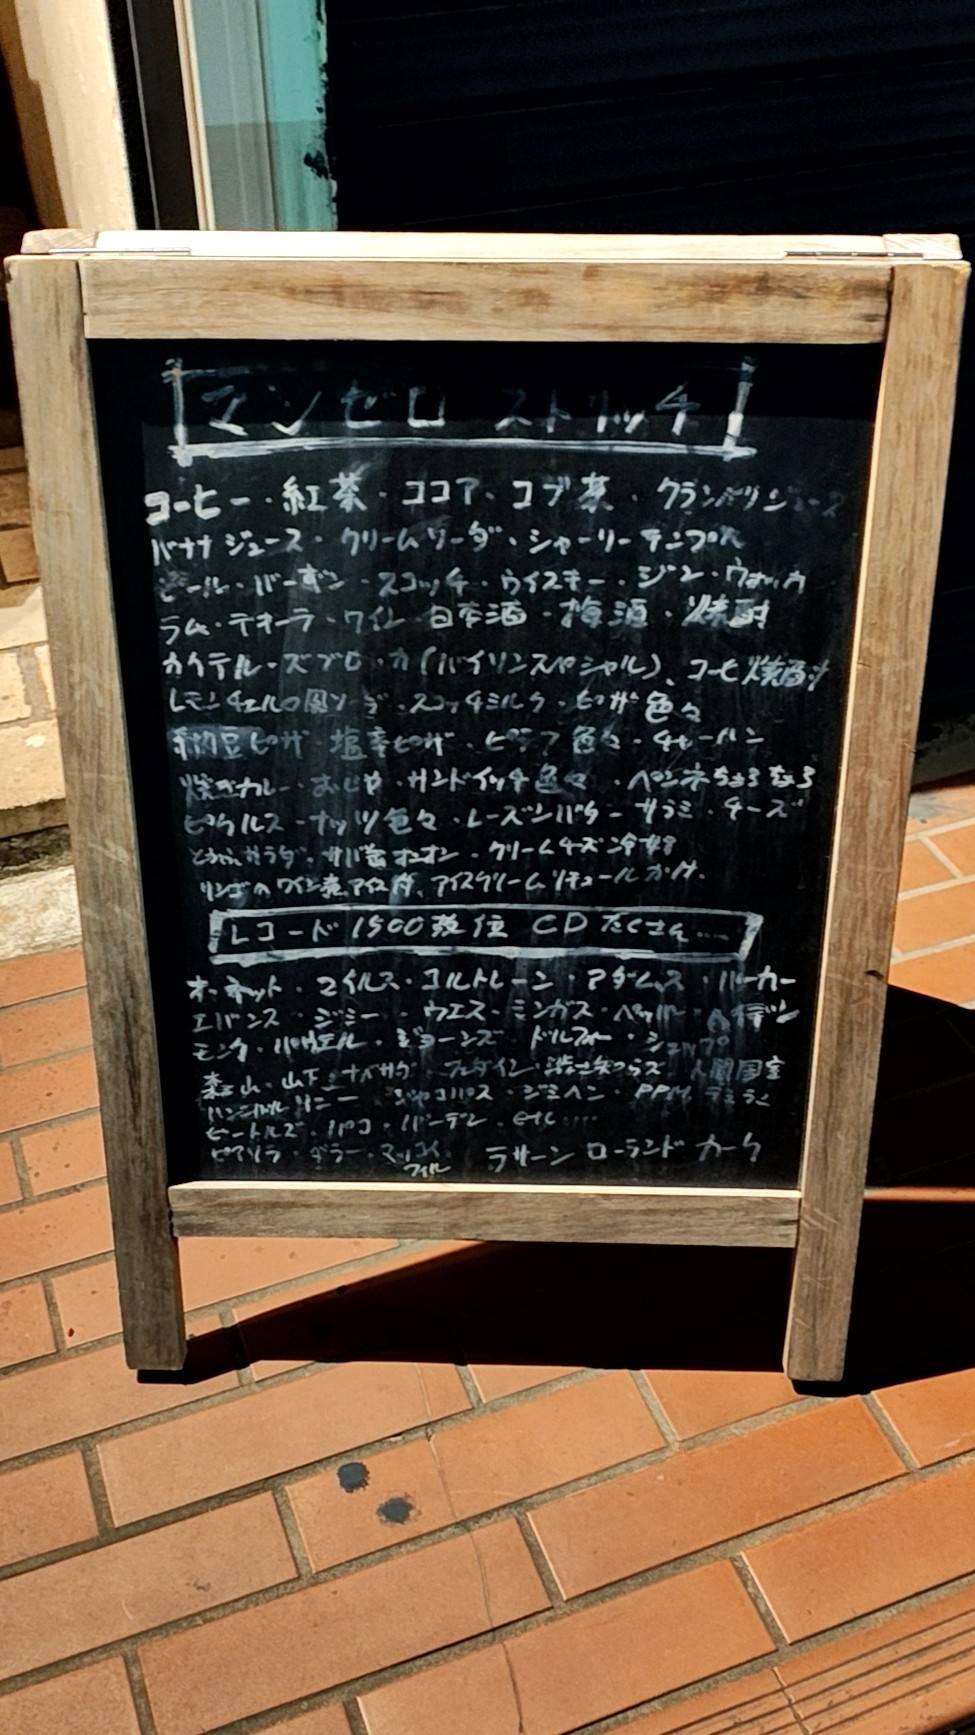 マンゼロ ストリッチ
コーヒー・紅茶・ココア・コブ茶・クランベリージュース
バナナジュース・クリームソーダ・シャーリーテンプル
ビール・バーボン・スコッチ・ウイスキー・ジン・ウォッカ
ラム・テキーラ・ワイン・日本酒・梅酒・焼酎
カクテル・ズブロッカ(バイソンスペシャル)、コーヒー焼酎
レモンチェルロ風ソーダ・スコッチミルク・ピザ色々
納豆ピザ・塩辛ピザ・ピラフ色々・チャーハン
焼きカレー・おじや・サンドイッチ色々・ペンネ
ピクルス・ナッツ色々・レーズンバター・サラミ・チーズ
サラダ・サバ缶オニオン・クリームチーズ冷奴
リンゴのワイン煮アイス、アイスクリームリキュールがけ.
レコード1500枚位 CDたくさん....
オーネット・マイルス・コルトレーン・アダムス・パーカー
エバンス・ジミー・ウエス・ミンガス・ペッパー・ヘイデン
モンク・パウエル・ジョーンズ・ドルフィー・シェップ
森山・山下・ナベサダ 人間国宝
ハンニバル ジャコパス・ジミヘン・PPM
ビートルズ・パコ・バーデン・
ピアソラ・ダラー・マッコイ ラサーン ローランド カーク